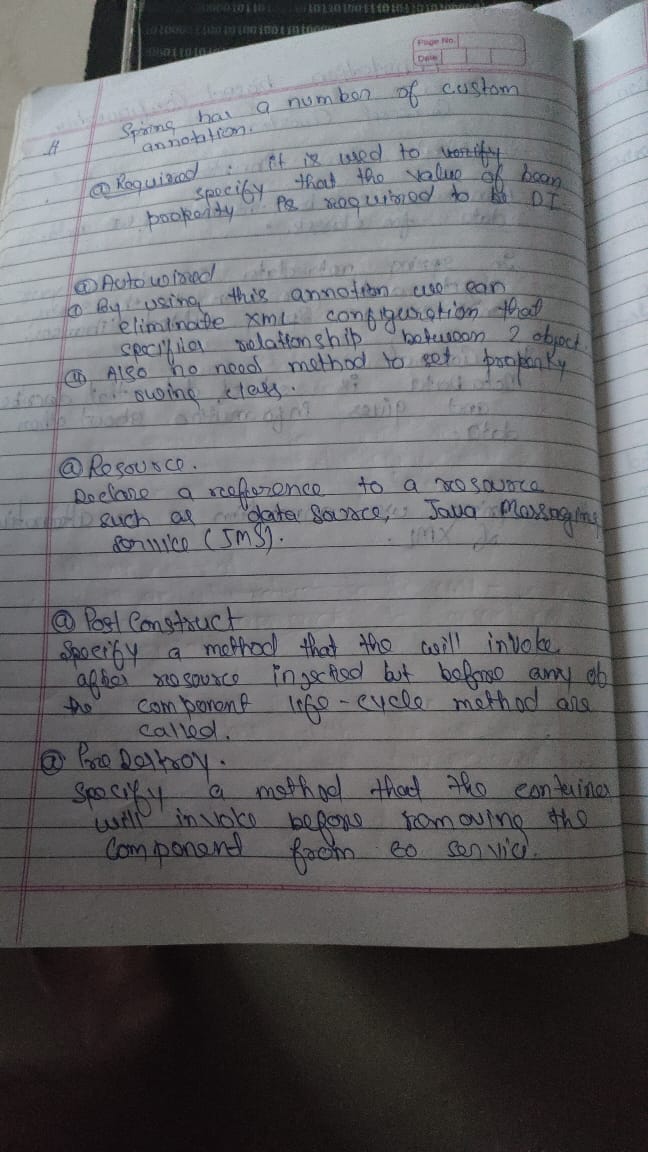 Page No.
Date
# Spring has a number of custom
annotation.
@ Required : it is used to verify
specify that the value of bean
property is required to be DI.
@ Autowired
① By using this annotation we can
eliminate XML configuration that
specifies relationship between 2 object.
② Also no need method to set property
owing class.
@ Resource.
Declare a reference to a resource
such as data source, Java Messaging
Service (JMS).
@ Post Construct
Specify a method that the will invoke
after resource injected but before any of
the component life-cycle method are
called.
@ Pre Destroy.
Specify a method that the container
will invoke before removing the
component from so service.